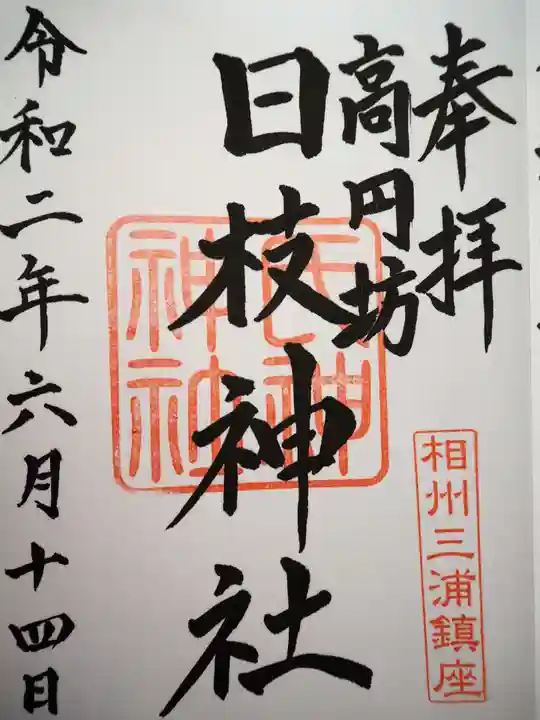 奉拝
高円坊
日枝神社
氏神
神社
相州三浦鎮座
令和二年六月十四日